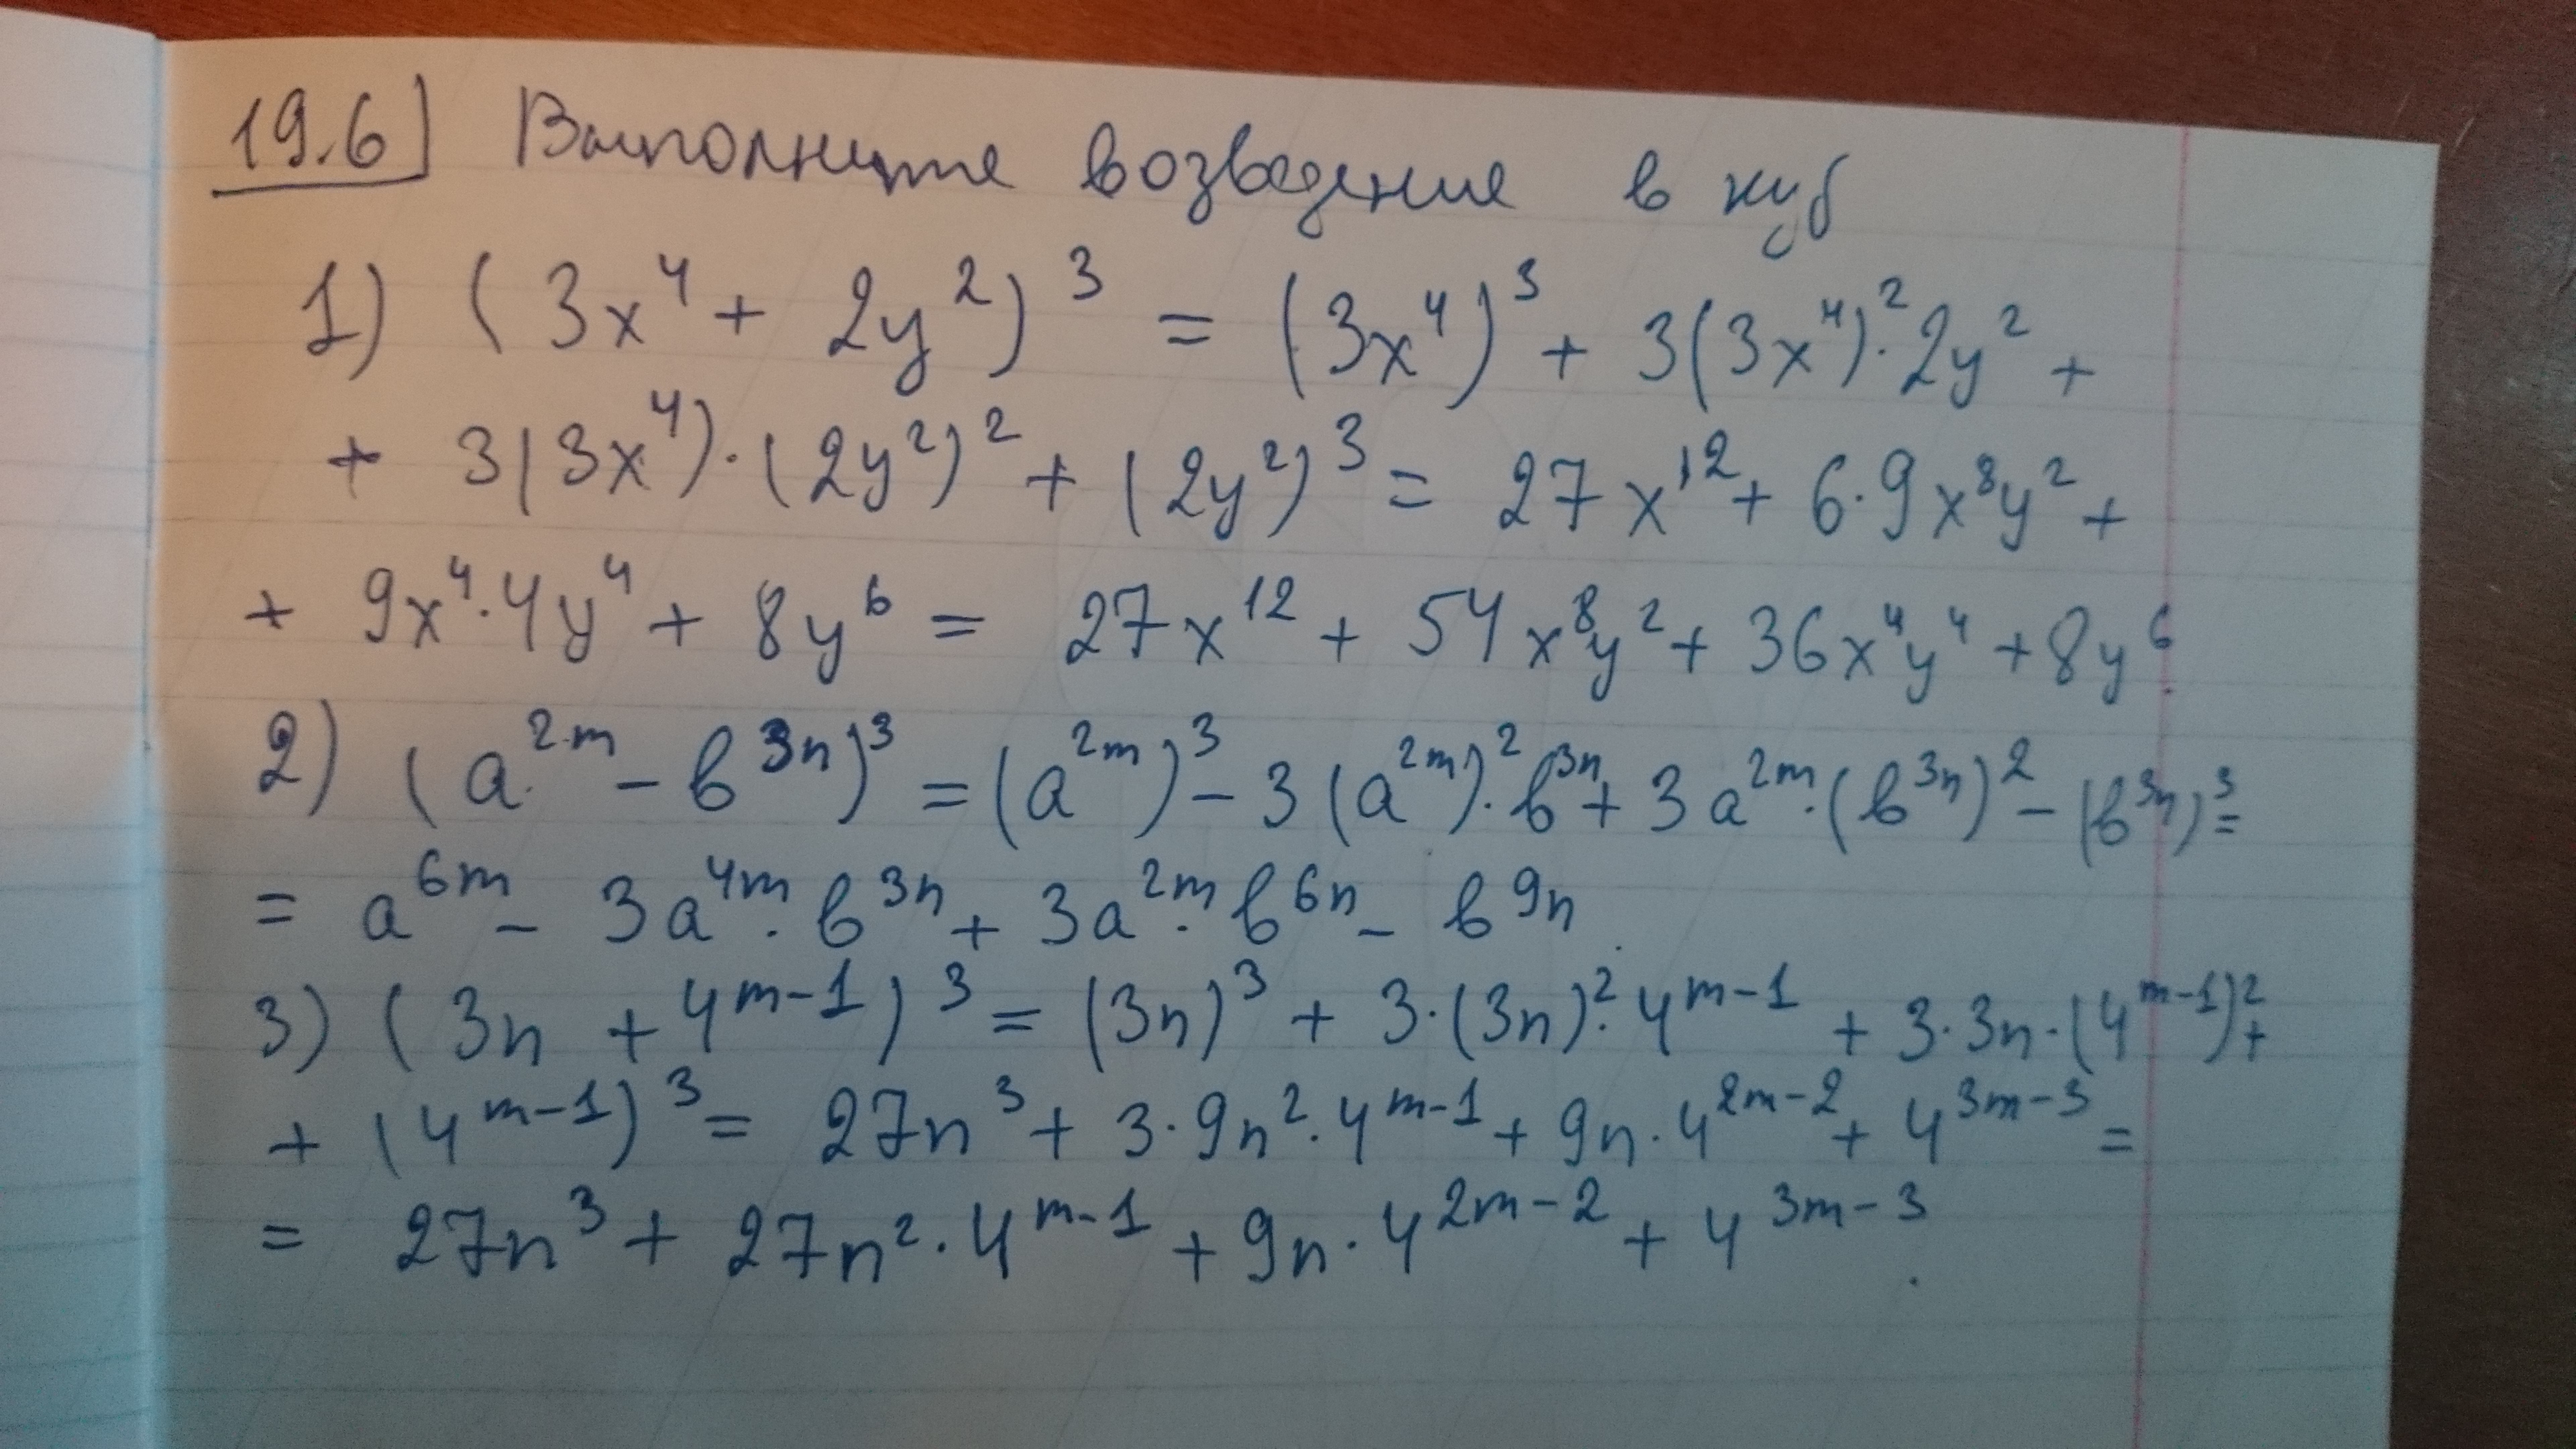 19.6] Выполните возведение в куб
1) (3x⁴ + 2y²)³ = (3x⁴)³ + 3(3x⁴)²·2y² +
+ 3(3x⁴)·(2y²)² + (2y²)³ = 27x¹² + 6·9x⁸y² +
+ 9x⁴·4y⁴ + 8y⁶ = 27x¹² + 54x⁸y² + 36x⁴y⁴ + 8y⁶.
2) (a^{2m} - в^{3n})³ = (a^{2m})³ - 3(a^{2m})²·в^{3n} + 3a^{2m}·(в^{3n})² - (в^{3n})³ =
= a^{6m} - 3a^{4m}·в^{3n} + 3a^{2m}·в^{6n} - в^{9n}.
3) (3n + 4^{m-1})³ = (3n)³ + 3·(3n)²·4^{m-1} + 3·3n·(4^{m-1})² +
+ (4^{m-1})³ = 27n³ + 3·9n²·4^{m-1} + 9n·4^{2m-2} + 4^{3m-3} =
= 27n³ + 27n²·4^{m-1} + 9n·4^{2m-2} + 4^{3m-3}.